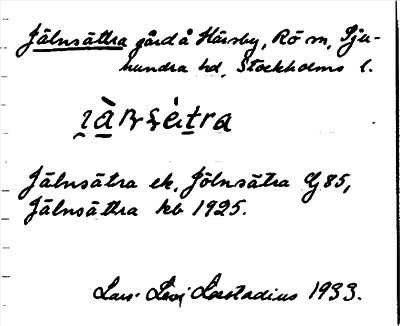 Jälnsättra gård å Härsby, Rö sn, Sju-
hundra hd, Stockholms l.
Jälnsätra ek, Jölnsätra Gj 85,
Jälnsättra kb 1925.
Lars Levi Læstadius 1933.